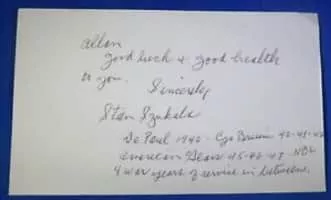 Allen
Good luck & good health
to you.
Sincerely
Stan Szukala
De Paul 1940 - Cgo Bruins 40-41-42
American Gears 45-46-47 - NBL
4 war years of service in between.